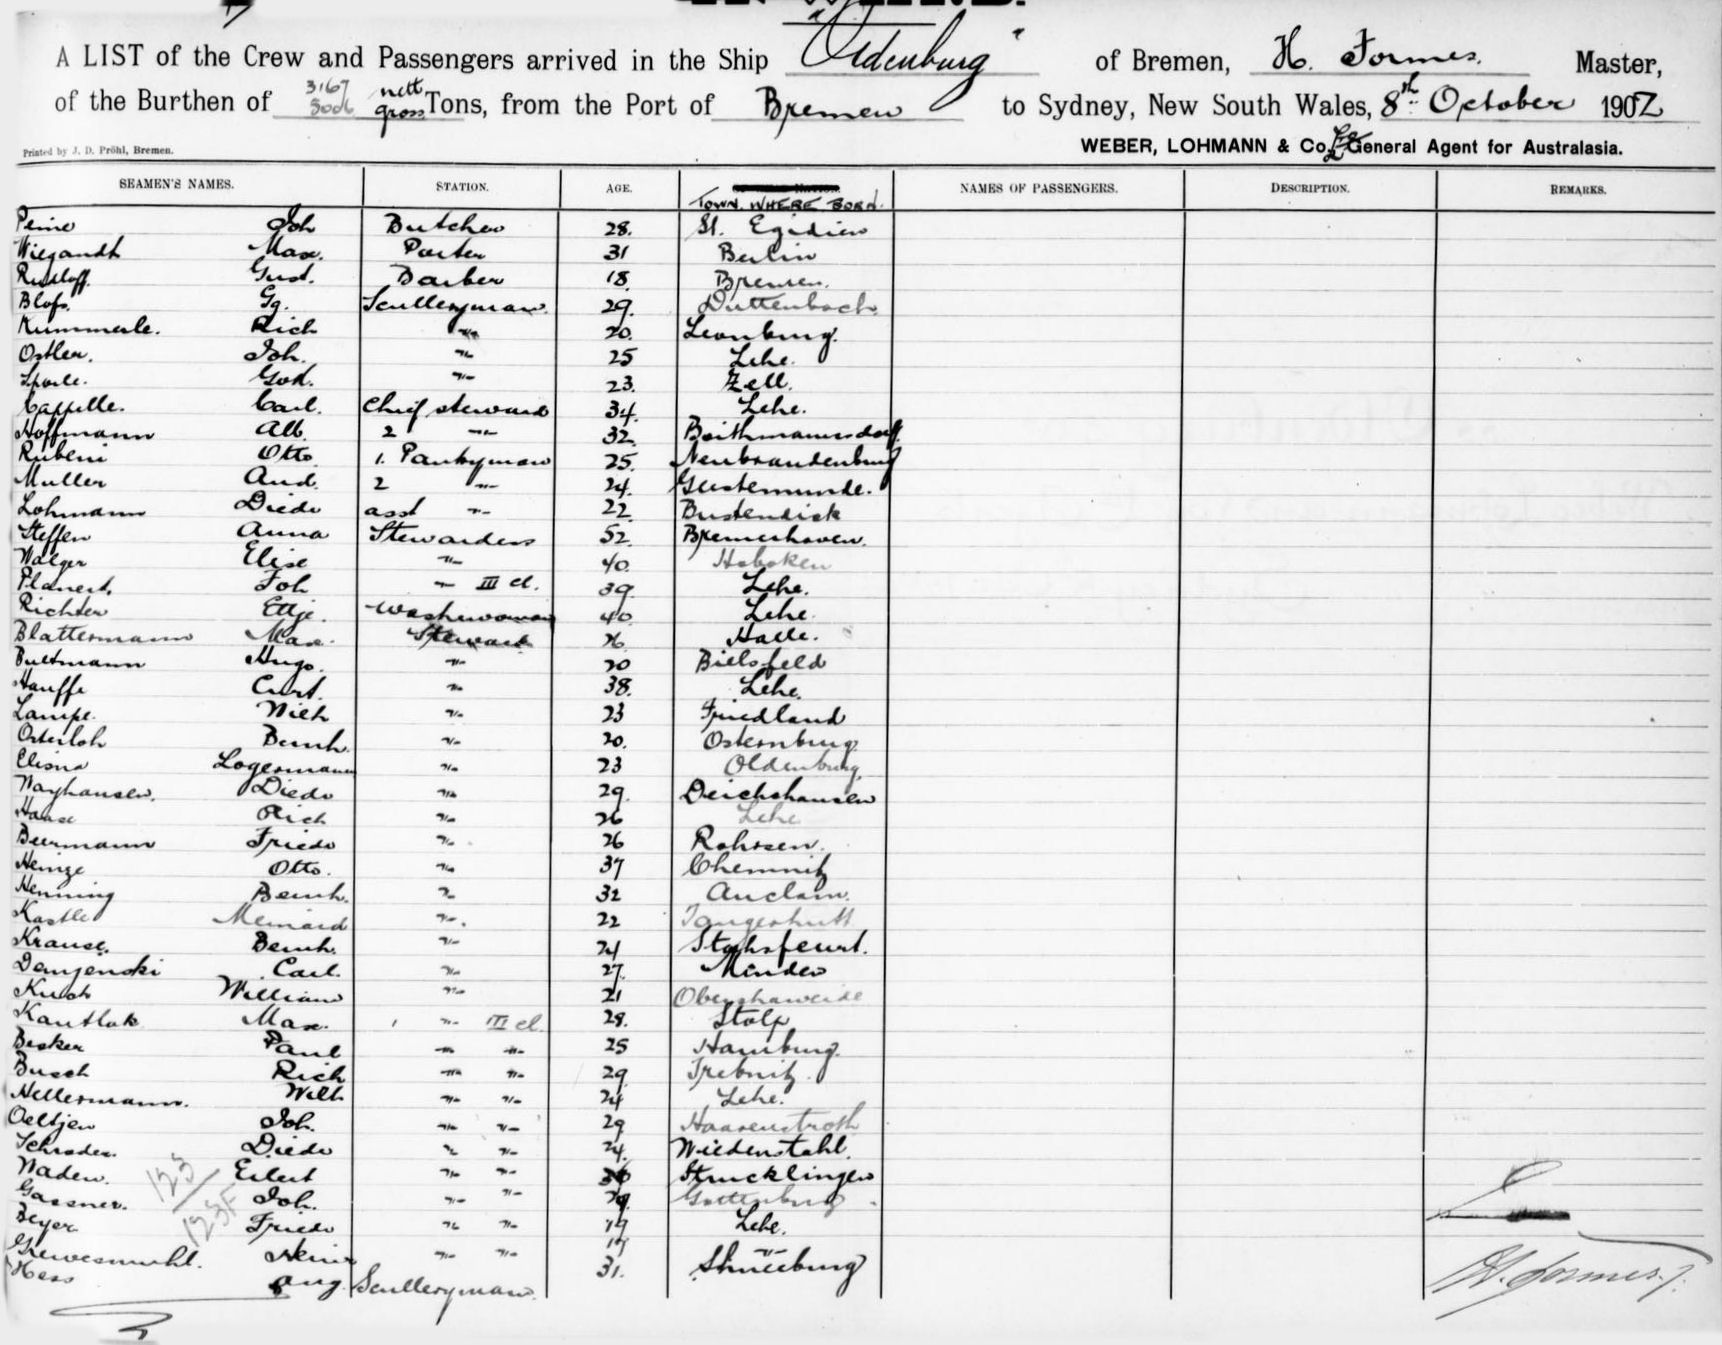 A LIST of the Crew and Passengers arrived in the Ship "Oldenburg" of Bremen, H. Formes. Master,
of the Burthen of 3167 nett 5006 gross Tons, from the Port of Bremen to Sydney, New South Wales, 8th October 1902
Printed by J. D. Pröhl, Bremen. WEBER, LOHMANN & Co. General Agent for Australasia.
SEAMEN'S NAMES. STATION. AGE. TOWN WHERE BORN. NAMES OF PASSENGERS. DESCRIPTION. REMARKS.
Peine Joh Butcher 28. St. Egidien
Wiegandt Max. Porter 31 Berlin
Rudloff Gust. Barber 18. Bremen.
Blofs. Gg. Sculleryman 29. Duttenbach
Kummerle. Rich " 20. Leonburg.
Ostler. Joh. " 25 Lehe.
God. " 23. Zell.
Cappelle. Carl. Chief steward 34. Lehe.
Hoffmann Alb. 2 " 32
Rubeni Otto 1. Pantryman 25. Neubrandenburg
Muller And. 2 " 24. Geestemunde.
Lohmann Diedr asst " 22
Steffen Anna Stewardess 52. Bremerhaven.
Walger Elise " 40. Hoboken
Planert, Joh " III cl. 39. Lehe.
Richter Etje. Washwoman 40 Lehe
Blattermann Max. Steward 26. Halle.
Bultmann Hugo. " 20 Bielsfeld
Hauffe Curt. " 38. Lehe.
Lampe. Wilh " 23 Friedland
Osterloh Bernh. " 20. Osternburg
Logermann " 23 Oldenburg.
Wayhausen. Diedr " 29. Deichshausen
Haase Rich " 26 Lehe
Beermann Friedr " 26 Rohrsen.
Heinze Otto. " 37 Chemnitz
Henning Bernh. " 32 Anclam.
Kastle Meinard " 22 Tangerhutt
Krause. Bernh. " 24
Demjenski Carl. " 27. Minden
William " 21
Kantlak Max. " III cl 28. Stolp
Becker Paul " " 25 Hamburg.
Busch Rich " " 29 Trebnitz.
Hellermann. Wilh " " 24 Lehe.
Oeltjen Joh. " " 29
Schroder. Diedr " " 24. Wiedenstahl.
Naden. Eilert " " Strucklingen
Gassner. Joh. " " 29.
Beyer. Friedr " " 19 Lehe.
Grevesmuhl. Hein " " 17 "
Hess Aug. Sculleryman. 31.
123
123F
H. Formes.